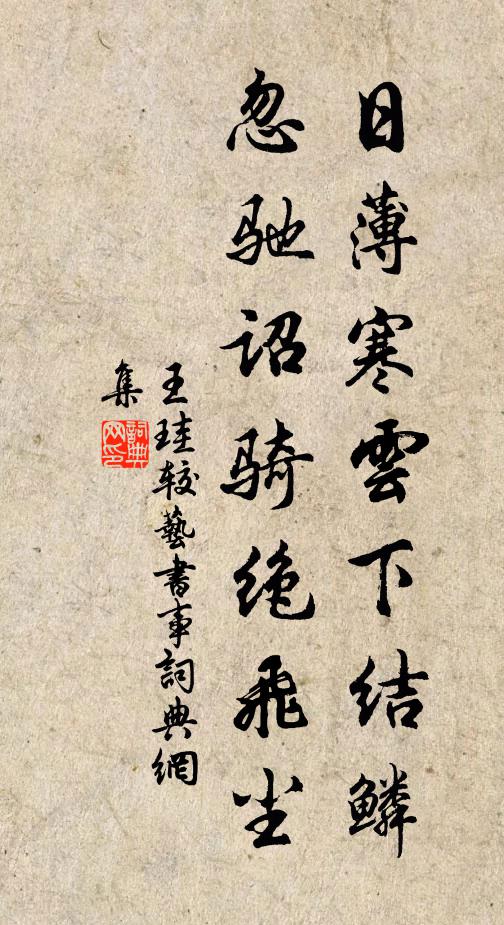 日薄寒雲下结鳞
忽驰诏骑绝飛尘
王珪较藝書事詞典網
集
詞典网印